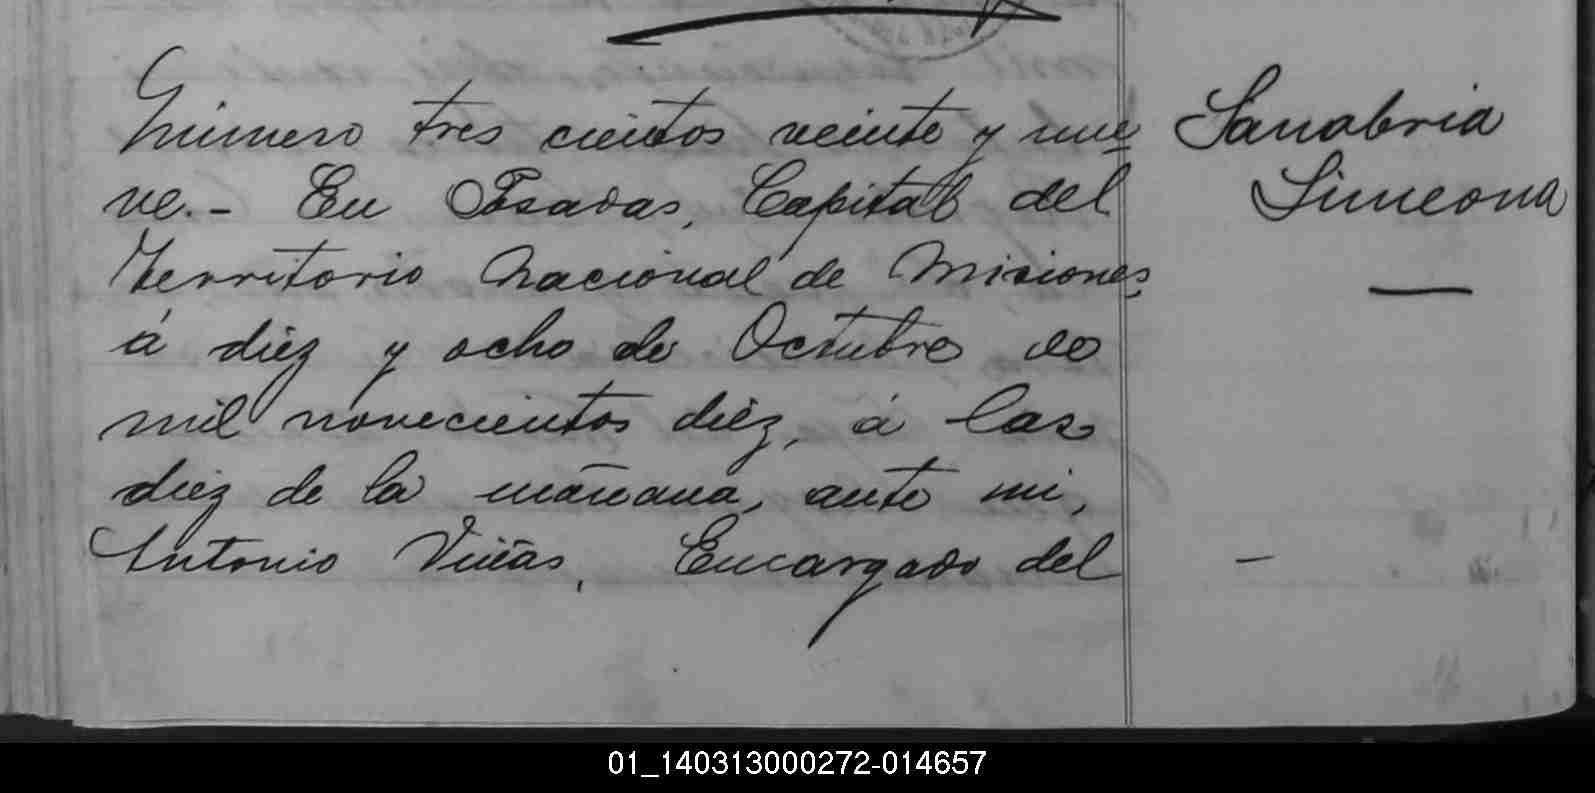 Número tres cientos veinte y nue
ve.- En Posadas, Capital del
Territorio Nacional de Misiones,
á diez y ocho de Octubre de
mil novecientos diez, á las
diez de la mañana, ante mi,
Antonio Viñas, Encargado del
Sanabria
Simeona
01_140313000272-014657